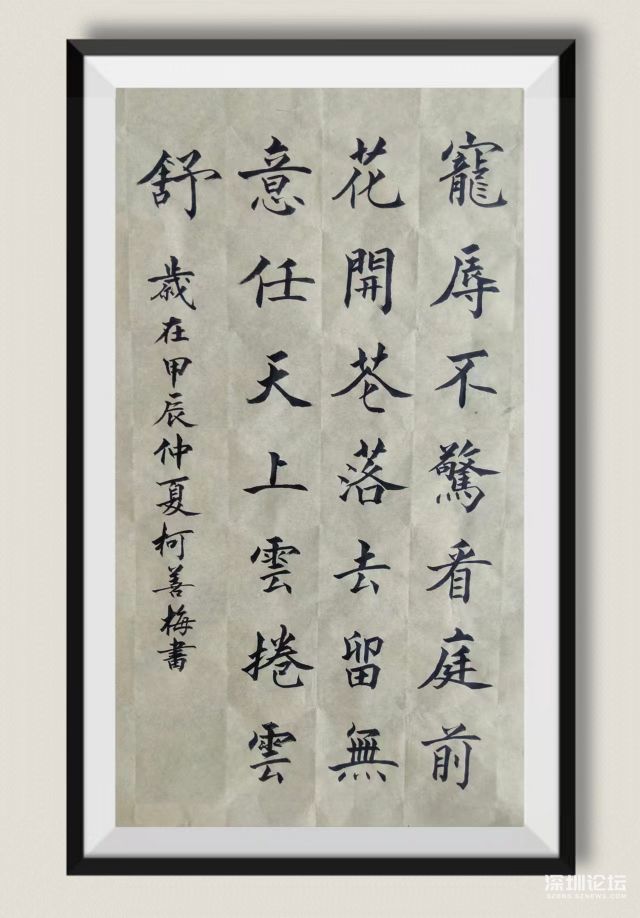 寵辱不驚看庭前
花開花落去留無
意任天上雲捲雲
舒
歲在甲辰仲夏柯善梅書
深圳论坛
SZBBS.SZNEWS.COM